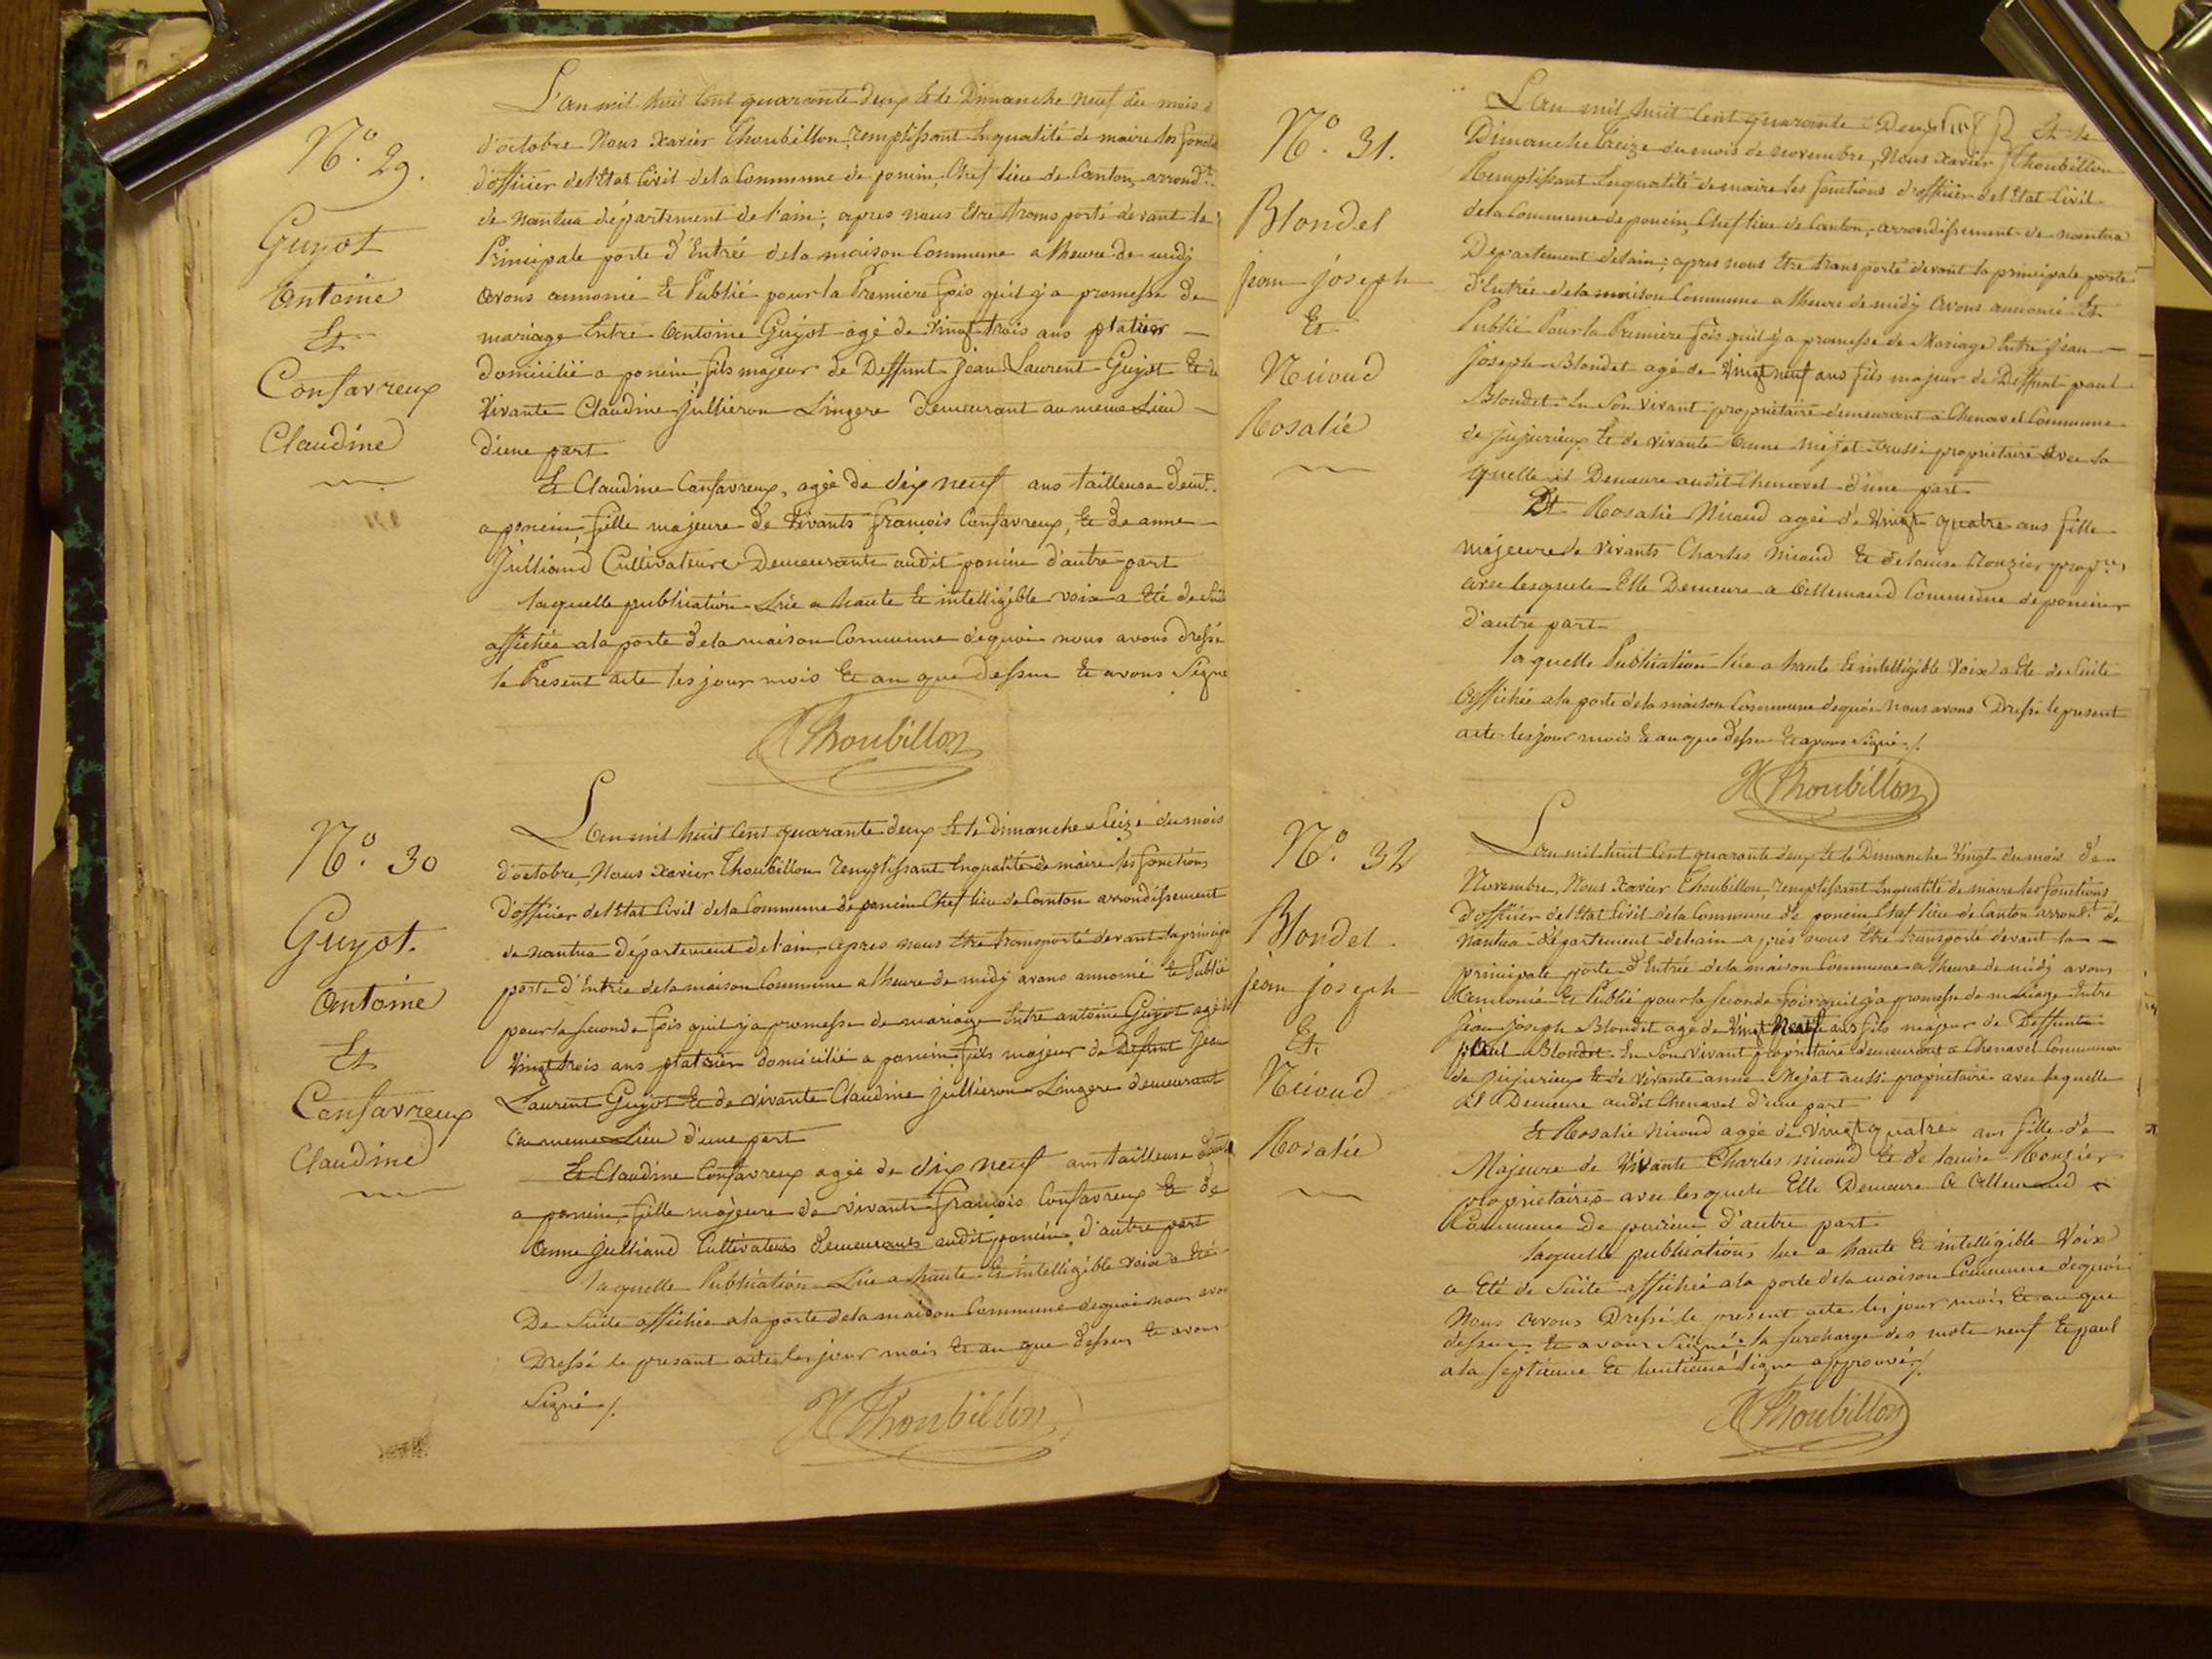 N.o 29.
Guyot
Antoine
Et
Confavreux
Claudine
L'an mil huit Cent quarante deux Et le Dimanche neuf du mois d
d'octobre Nous Xavier Thoubillon, remplissant En qualité de maire les fonct
d'officier de l'Etat Civil de la Commune de poncin, Chef lieu de Canton, arrond.t
de Nantua département de l'ain; apres nous Etre transporté devant la
Principale porte d'Entrée de la maison Commune a l'heure de midy
avons annoncé Et Publié pour la Premiere fois qu'il y a promesse de
mariage Entre Antoine Guyot agé de vingt trois ans platrier
domicilié a poncin, fils majeur de Deffunt Jean Laurent Guyot Et de
Vivante Claudine Jullieron Lingere demeurant au meme Lieu
d'une part
Et Claudine Confavreux, agée de dix neuf ans tailleuse dem.t
a poncin, fille majeure de Vivants françois Confavreux, Et de anne
Julliand Cultivateurs Demeurants audit poncin d'autre part
laquelle publication Lüe a haute Et intelligible voix a Eté de Suite
affichée a la porte de la maison Commune de quoi nous avons dressé
le Present acte les jour mois Et an que dessus Et avons Signé
X Thoubillon
N.o 30
Guyot.
Antoine
Et
Confavreux
Claudine
L'an mil huit Cent quarante deux Et le dimanche Seize du mois
d'octobre, Nous Xavier Thoubillon remplissant En qualité de maire les fonctions
d'officier de l'Etat Civil de la Commune de poncin Chef lieu de Canton arrondissement
de nantua département de l'ain, apres nous Etre transporté devant la principa
porte d'Entrée de la maison Commune a l'heure de midy avons annoncé Et Publié
pour la seconde fois qu'il y a promesse de mariage Entre antoine Guyot agé de
vingt trois ans platrier domicilié a poncin, fils majeur de Defunt Jean
Laurent Guyot Et de vivante Claudine jullieron Lingere demeurant
au meme Lieu d'une part
Et Claudine Confavreux agée de dix neuf ans tailleuse
a poncin, fille majeure de vivants françois Confavreux Et de
Anne Julliand Cultivateurs demeurants audit poncin, d'autre part
laquelle Publication Lüe a haute Et intelligible voix a Eté
De Suite affichée a la porte de la maison Commune de quoi nous avon
Dressé le presant acte les jour mois Et an que dessus Et avons
Signé ./.
X Thoubillon
N.o 31.
Blondel
jean joseph
Et
Nicoud
Rosalie
L'an mil huit Cent quarante Deux Et le
Dimanche treize du mois de novembre, Nous Xavier Thoubillon
Remplissant En qualité de maire les fonctions d'officier de l'Etat Civil
de la Commune de poncin, Chef lieu de Canton, arrondissement de nantua
Departement de l'ain; apres nous Etre transporté devant la principale porte
d'Entrée de la maison Commune a l'heure de midy avons annoncé Et
Publié Pour la Premiere fois qu'il y a promesse de Mariage Entre Jean
Joseph Blondel agé de Vingt neuf ans fils majeur de Deffunt paul
Blondel En Son vivant propriétaire demeurant a Chenavel Commune
de jujurieux Et de vivante Anne Mejat aussi propriétaire avec la
quelle il Demeure audit Chenavel d'une part
Et Rosalie Nicoud agée de Vingt quatre ans fille
majeure de vivants Charles nicoud Et de Louise Monzier prop.res
avec lesquels Elle Demeure a Allemand Commune de poncin
d'autre part
laquelle Publication lüe a haute Et intelligible Voix a Eté de Suite
Affichée a la porte de la maison Commune de quoi Nous avons Dressé le present
acte les jour mois Et an que dessus Et avons Signé ./.
X Thoubillon
N.o 32
Blondel.
jean joseph
Et
Nicoud
Rosalie
L'an mil huit Cent quarante deux Et le Dimanche Vingt du mois de
Novembre, Nous Xavier Thoubillon, remplissant En qualité de maire les fonctions
d'officier de l'Etat Civil de la Commune de poncin Chef lieu de Canton arrond.t de
Nantua département de l'ain après nous Etre transporté devant la
principale porte d'Entrée de la maison Commune a l'heure de midy avons
annoncé Et Publié pour la seconde fois qu'il y a promesse de mariage Entre
Jean joseph Blondel agé de Vingt Neuf ans fils majeur de Deffunt
paul Blondel En Son vivant propriétaire demeurant a Chenavel Commune
de jujurieux Et de vivante anne Mejat aussi propriétaire avec laquelle
il Demeure audit Chenavel d'une part
Et Rosalie nicoud agée de vingt quatre ans fille de
Majeure de Vivants Charles nicoud Et de Louise Monzier
propriétaires avec lesquels Elle Demeure a Allemand
Commune de poncin d'autre part
laquelle publications lue a haute Et intelligible Voix
a Eté de Suite affichée a la porte de la maison Commune de quoi
Nous avons Dressé le present acte les jour mois Et an que
dessus Et avons Signé: la surcharge des mots neuf Et paul
a la septieme Et huitieme ligne approuvé ./.
X Thoubillon